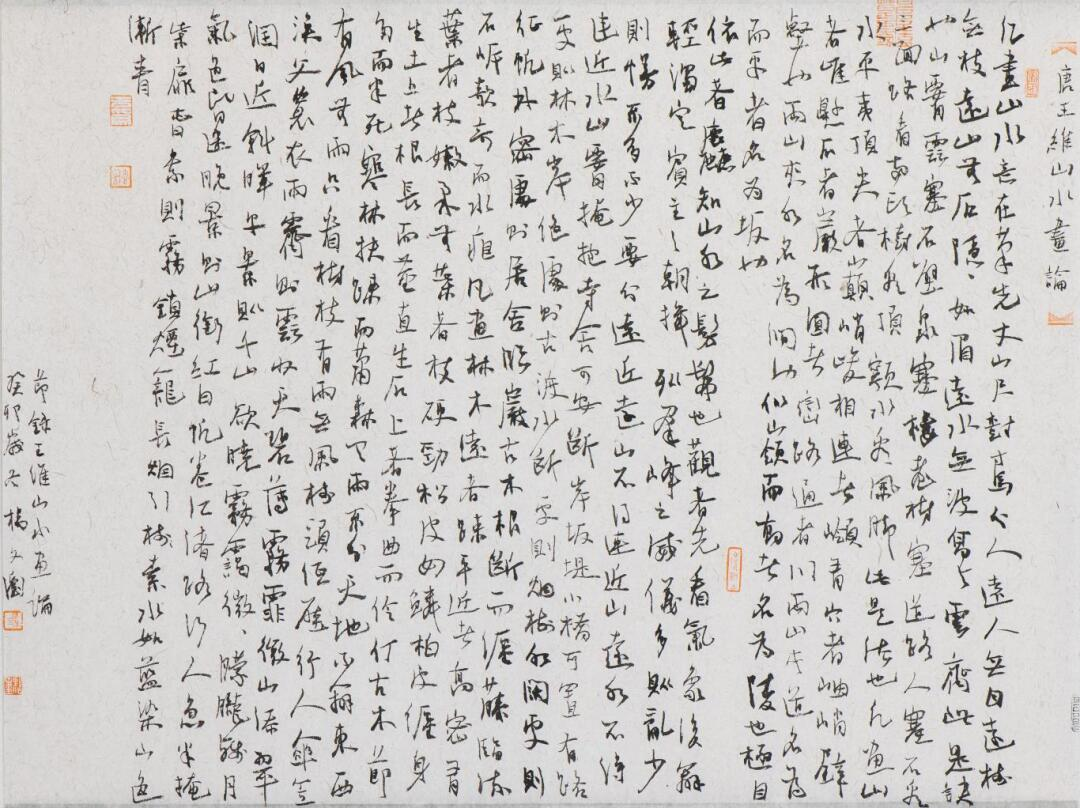 唐王維山水畫論
凡畫山水意在筆先丈山尺樹寸馬分人遠人無目遠樹
無枝遠山無石隱隱如眉遠水無波高與雲齊此是訣
也山腰雲塞石壁泉塞樓臺樹塞道路人塞石看
三面路看兩頭樹看頂顙水看風脚此是法也凡畫山
水平夷頂尖者巔峭峻相連者嶺有穴者岫峭壁
者崖懸石者巖形圓者巒路通者川兩山夾道名為
壑也兩山夾水名為澗也似山嶺而高者名為陵也極目
而平者名為坂也
依此者麤知山水之髣髴也觀者先看氣象後辨
輕濁定賓主之朝揖列群峰之威儀多則亂少
則慢不多不少要分遠近遠山不得連近山遠水不得
連近水山要掩抱寺舍可安斷岸坂堤小橋可置有路
處則林木岸絕處則古渡水斷處則烟樹水闊處則
征帆林密處則居舍臨巖古木根斷而纏藤臨流
石岸欹奇而水痕凡畫林木遠者疎平近者高密有
葉者枝嫩柔無葉者枝硬勁松皮如鱗柏皮纏身
生土上者根長而莖直生石上者拳曲而伶仃古木節
多而半死寒林扶疎而蕭森有雨不分天地不辨東西
有風無雨只看樹枝有雨無風樹頭低壓行人傘笠
漁父蓑衣雨霽則雲收天碧薄霧霏微山添翠
潤日近斜暉早景則千山欲曉霧靄微微朦朧殘月
氣色昏迷晚景則山銜紅日帆卷江渚路行人急半掩
柴扉春景則霧鎖煙籠長烟引樹素水如藍染山色
漸青
節錄王維山水畫論
癸卯歲冬